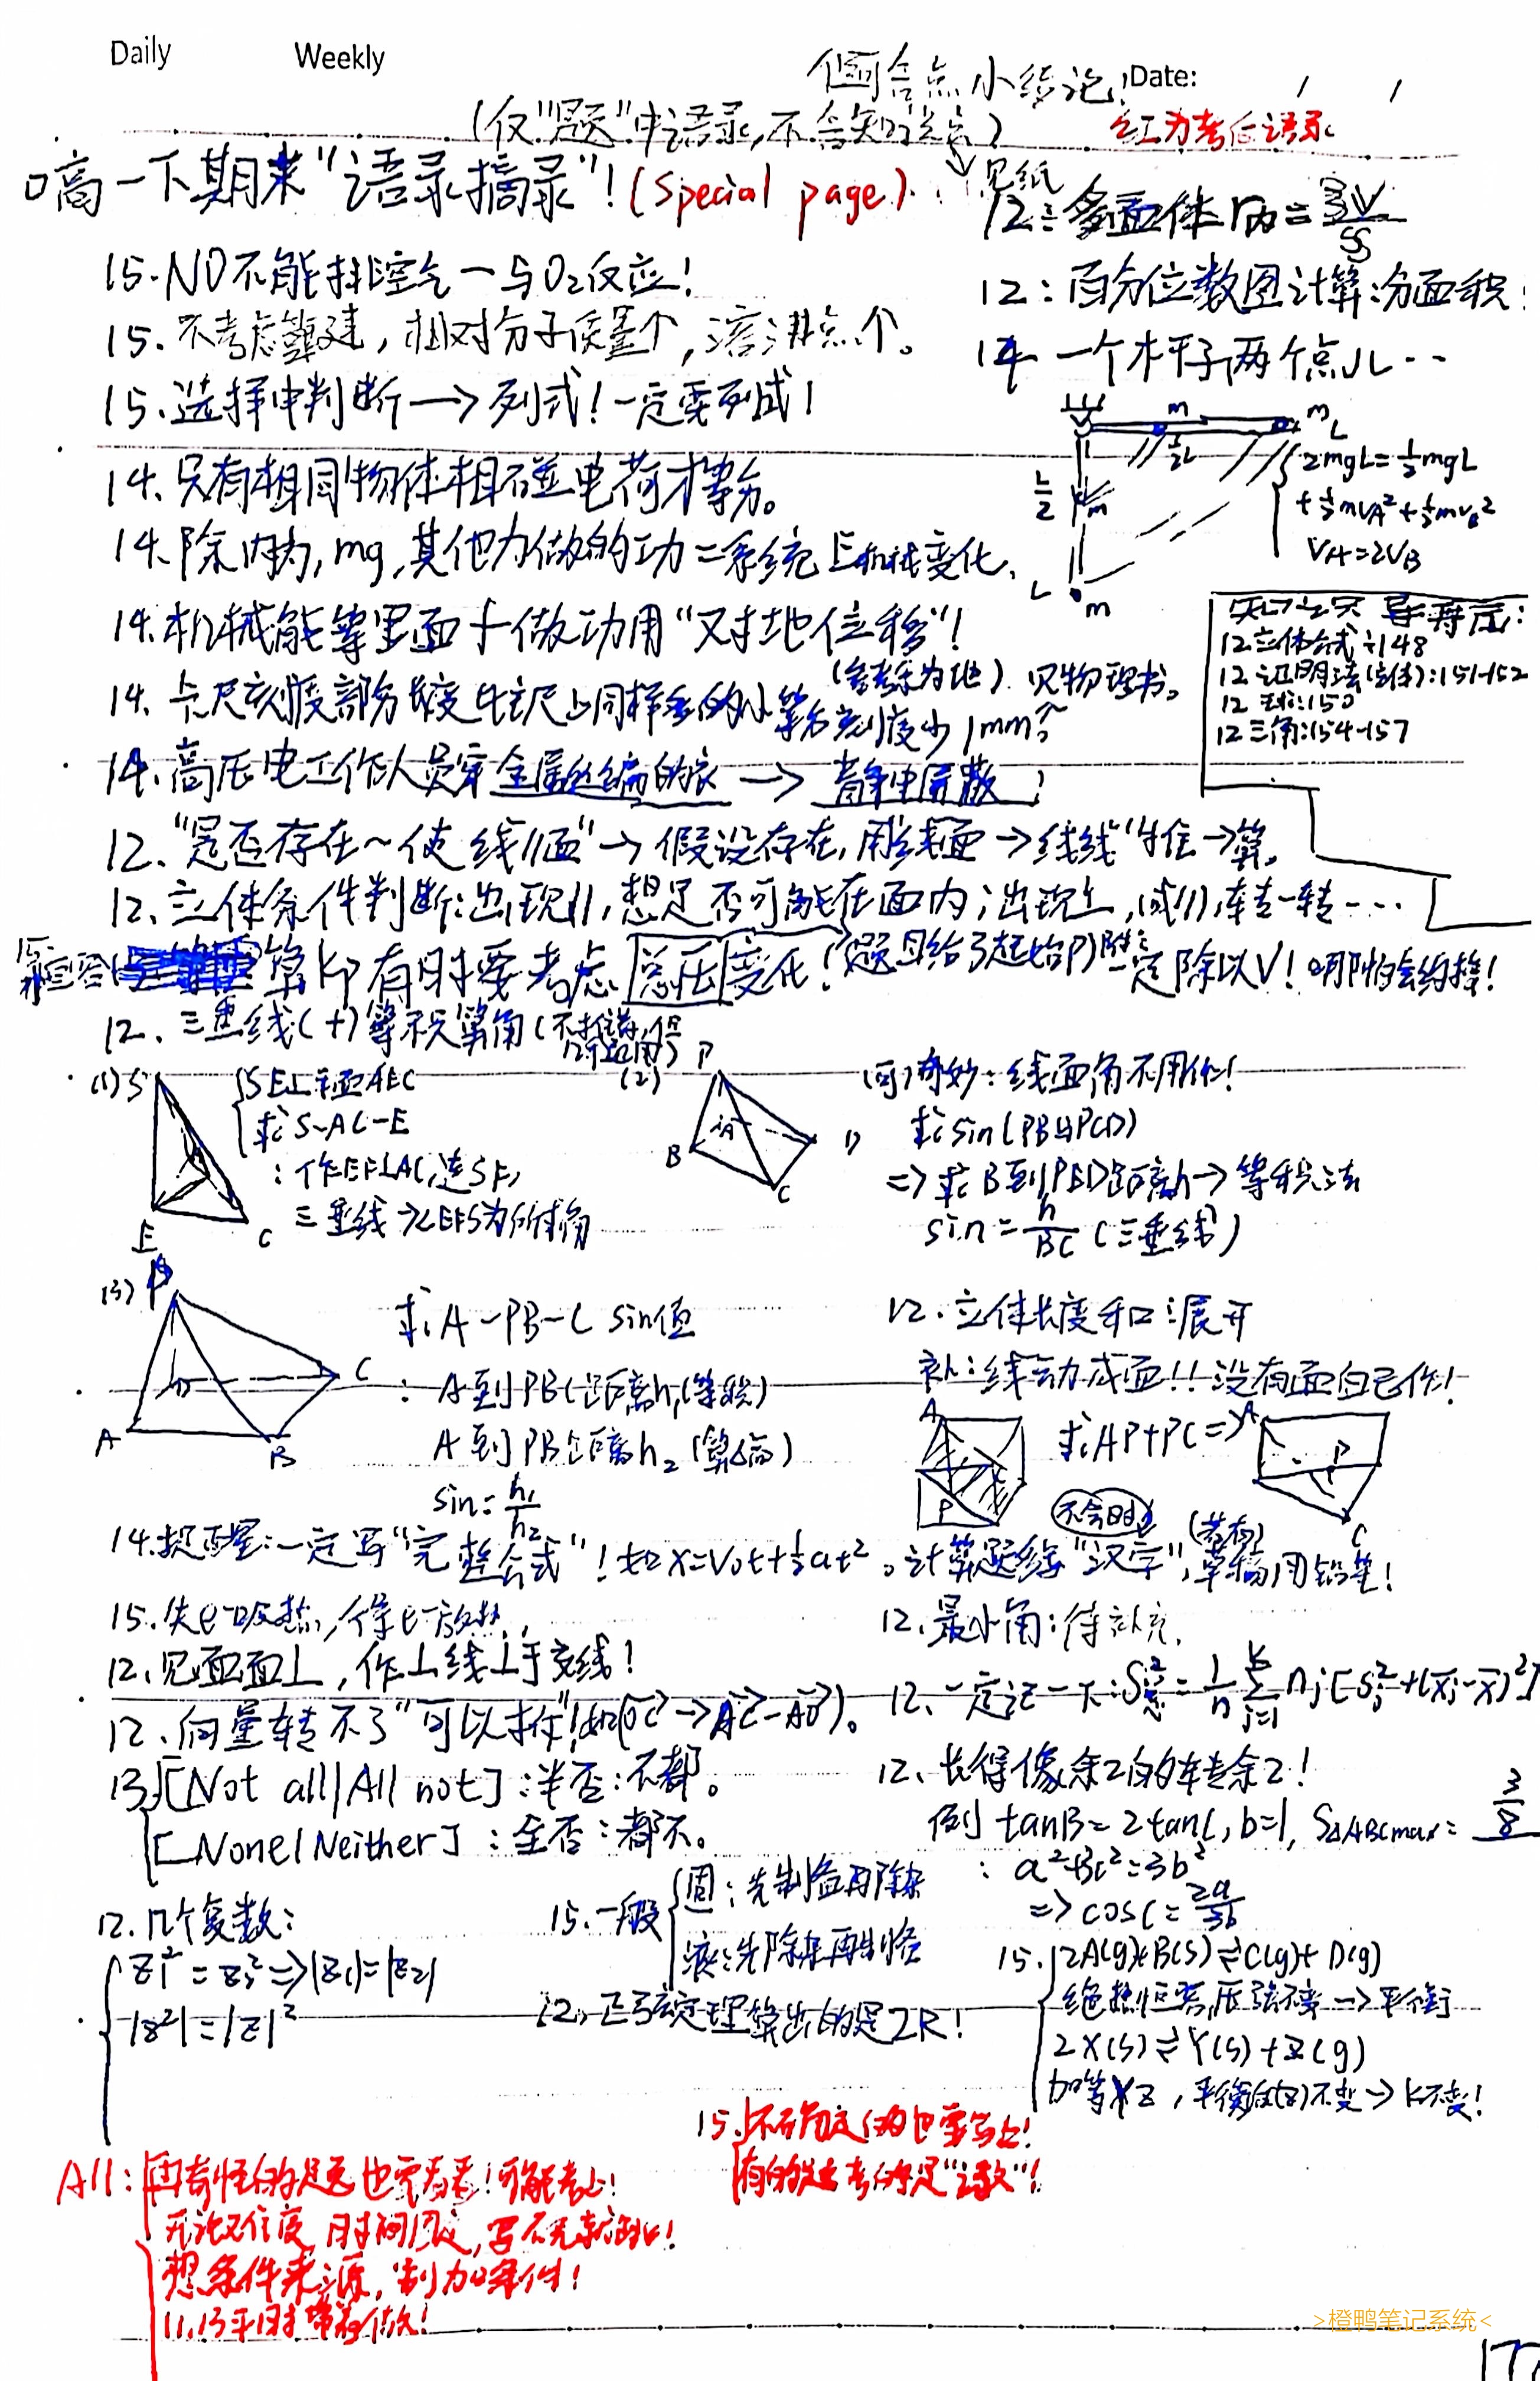 Daily Weekly
Date: / /
小结论
(仅"题"中语录,不含知识点)
红为考后语录
高一下期末"语录摘录"!(Special page).
见纸
12:多面体r内=3V/S
15.NO不能排空气—与O₂反应!
12:百分位数图计算:分面积!
15.不考虑氢键,相对分子质量个,溶沸点个。
14 一个杆子两个点儿··
15.选择中判断→列式!一定要列成1
m m L
½L
2mgL=½mgL
+½mvA²+½mvB²
VA=2VB
L/2 m
L m
14.只有相同物体相碰电荷才等分。
14.除内力,mg,其他力做的功=系统E机械变化.
14.机械能等里面十做功用"对地位移"!
(参考系为地).见物理书。
12立体公式:148
12证明法(立体):151-152
12 球:150
12三角:154-157
14.卡尺刻度部分长度比主尺上同样多的小等分刻度少1mm?
14.高压电工作人员穿金属丝编的衣→静电屏蔽!
12."是否存在~使线//面"→假设存在,用线面→线线"推→算.
12.立体条件判断:出现//,想是否可能在面内;出现⊥,或//,转一转---
15. 算Kp有时要考虑总压变化!(题目给了起始P)
一定除以V!哪怕会约掉!
12.三垂线(+)等积算角
(1)S
SE⊥平面AEC
求S-AC-E
:作EF⊥AC,连SF,
三垂线→∠EFS为所求角
E C
(2)
P A B C D
(可)奇妙:线面角不用作!
求sin(PB与PCD)
⇒求B到PED距离h→等积法
sin=h/BC(三垂线)
(3)P
A B C D
求A-PB-C sin值
:A到PBC距离h₁(等积)
A到PB距离h₂(算高)
sin=h₁/h₂
12.立体长度和:展开
补:线动成面!!没有面自己作!
A P
求AP+PC⇒
A P C
14.提醒:一定写"完整公式"!如x=V₀t+½at²。计算题写"汉字",草稿用铅笔!
不会时
(若有)
15.失e⁻吸热,得e⁻放热.
12.最小角:待补充.
12.见面面⊥,作⊥线⊥于交线!
12.一定记一下:S总²=1/n Σ(j=1,k) nj[sj²+(x̄j-x̄)²]
12.向量转不了"可以拆"!如(OC→AC-AO)。
13.[Not all/All not]:半否:不都。
[None/Neither]:全否:都不。
12.长得像余2的转余2!
例 tanB=2tanC,b=1,S△ABCmax=3/8
:a²+3c²=3b²
⇒cosC=2a/3b
12.几个复数:
z₁²=z₂²⇒|z₁|=|z₂|
|z²|=|z|²
15.一般
固:先制备再除杂
液:先除杂再制备
12.正弦定理算出的是2R!
15.2A(g)+B(s)⇌C(g)+D(g)
绝热恒容,压强不变→平衡
2X(s)⇌Y(s)+Z(g)
加等XZ,平衡c(z)不变→K不变!
15.不确定你也要写上!
有的就考的是"读数"!
All:再奇怪的是也要看看!可能考上!
无论难度,时间,写不完就!
想条件来源,别加条件!
11.13平时常做!
>橙鸭笔记系统<